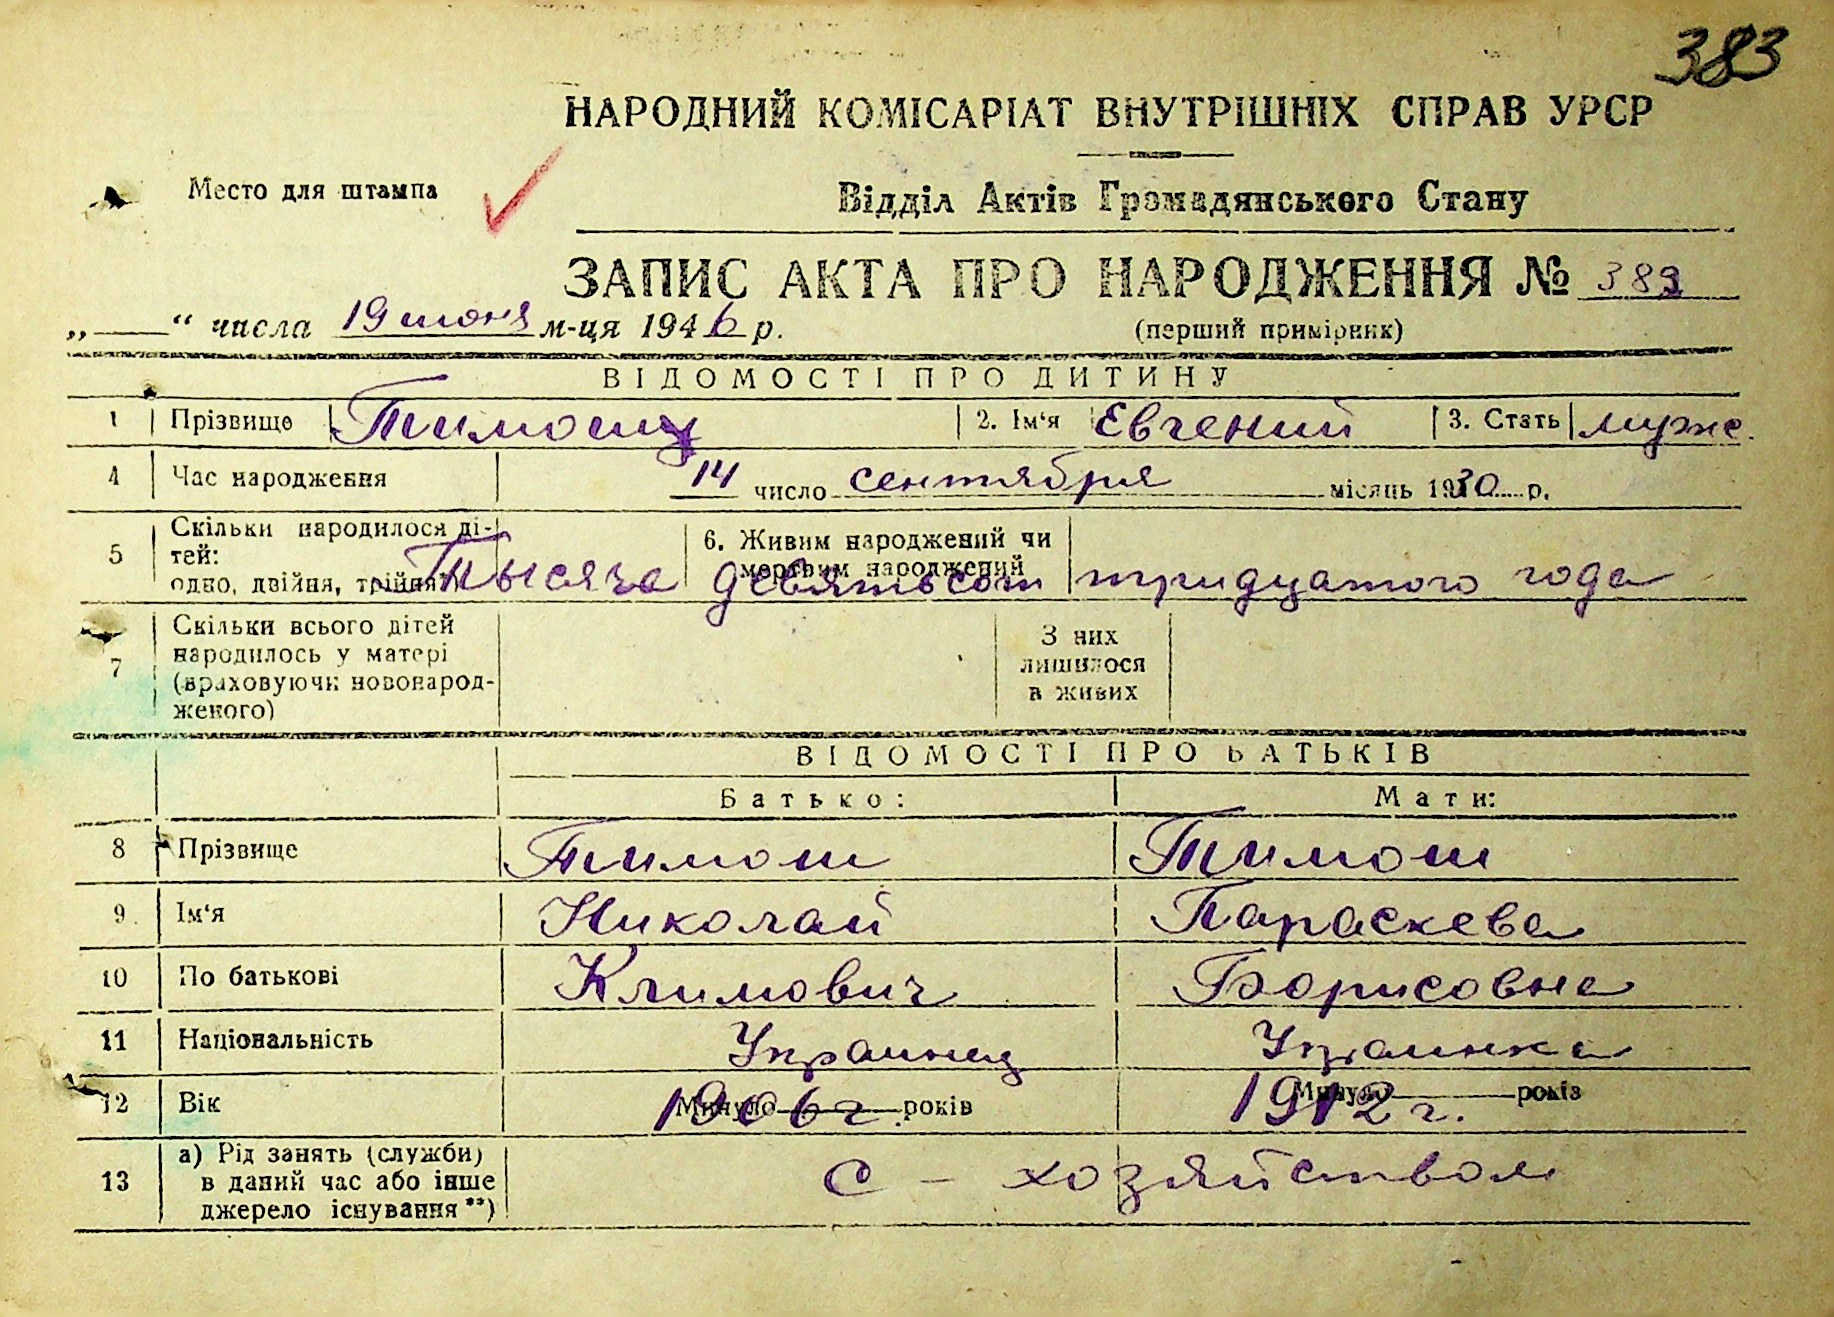 383
НАРОДНИЙ КОМІСАРІАТ ВНУТРІШНІХ СПРАВ УРСР
Место для штампа
Відділ Актів Громадянського Стану
ЗАПИС АКТА ПРО НАРОДЖЕННЯ № 383
„—“ числа 19 июня м-ця 1946 р. (перший примірник)
ВІДОМОСТІ ПРО ДИТИНУ
1 Прізвище Тимош 2. Ім‘я Евгений 3. Стать муж.
4 Час народження 14 число сентября місяць 1930 р.
5 Скільки народилося ді-
тей:
одно, двійня, трійня
6. Живим народжений чи
мертвим народжений
Тысяча девятьсот тридцатого года
7 Скільки всього дітей
народилось у матері
(враховуючи новонарод-
женого)
З них
лишилося
в живих
ВІДОМОСТІ ПРО БАТЬКІВ
Батько: Мати:
8 Прізвище Тимош Тимош
9 Ім‘я Николай Параскева
10 По батькові Климович Борисовна
11 Національність Украинец Украинка
12 Вік Минуло 1906 г. років Минуло 1912 г. років
13 а) Рід занять (служби)
в даний час або інше
джерело існування **)
С – хозяйством